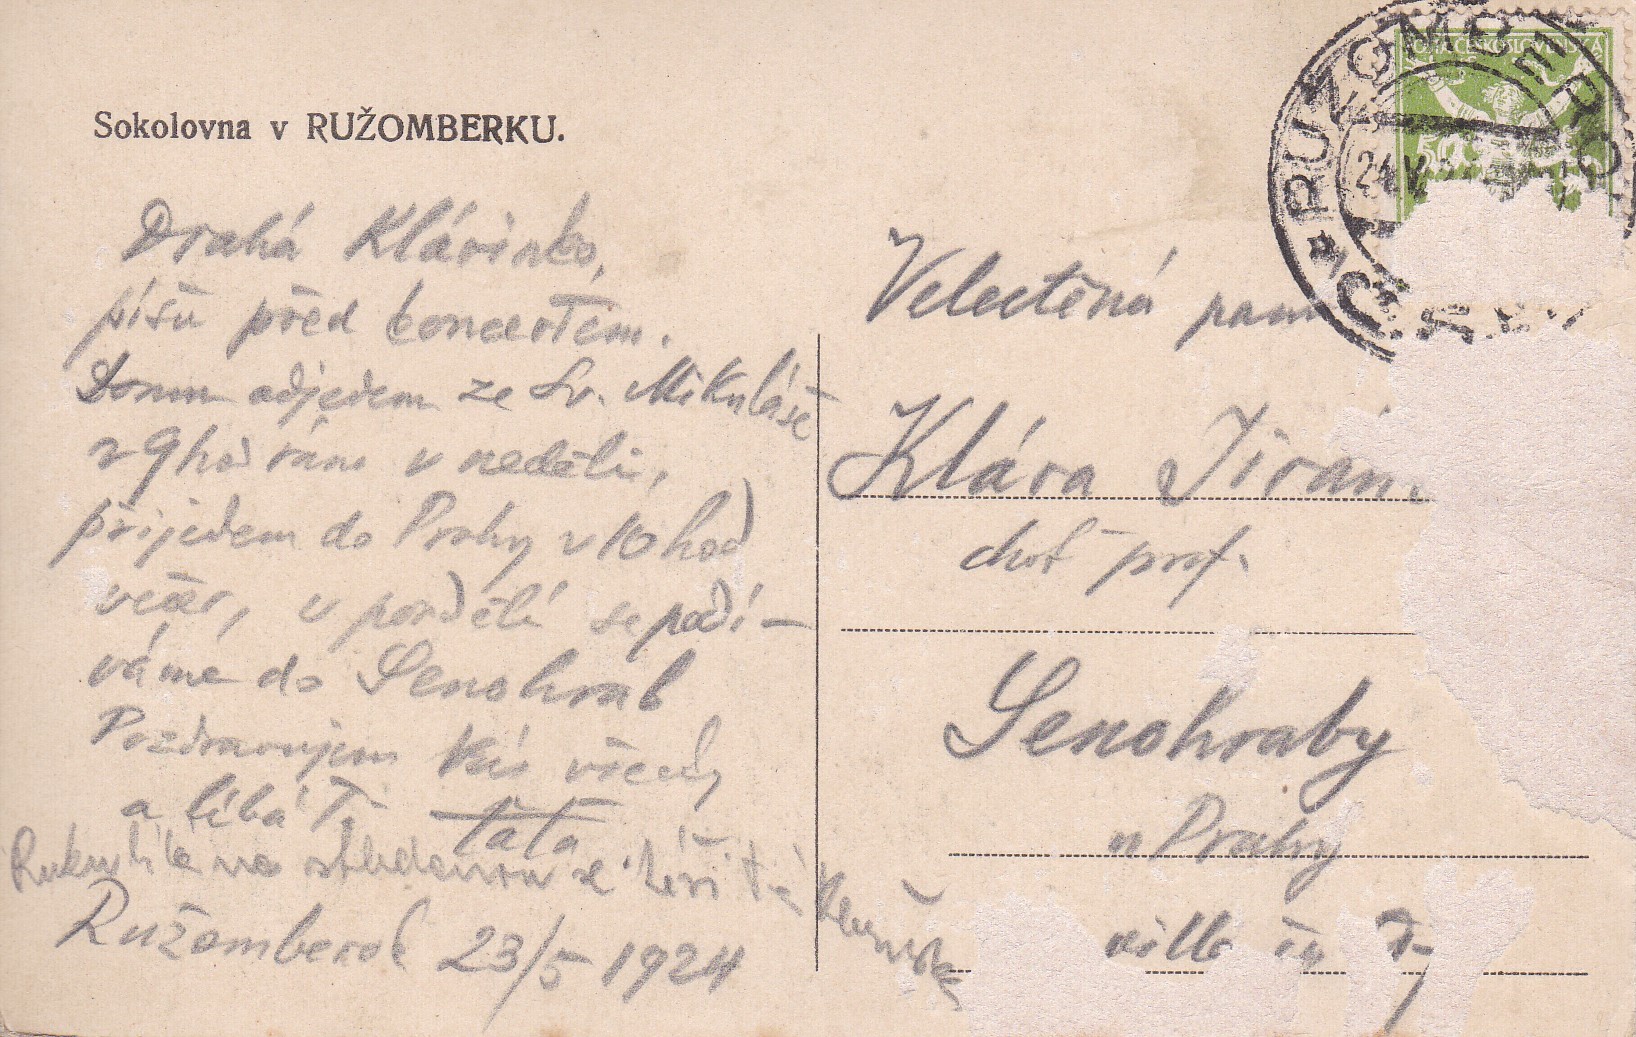 Sokolovna v RUŽOMBERKU.
Drahá Klárinko,
píšu před koncertem.
Domu odjedem ze Sv. Mikuláše
v 9 hod ráno v neděli,
přijedem do Prahy v 10 hod
večer, v pondělí se podí-
váme do Senohrab
Pozdravujem Vás všecky
a líbá Tě táta
Ružomberok 23/5 1924
RUŽOMBEROK
POŠTA ČESKOSLOVENSKÁ
50
Velectěná paní
Klára
choť prof.
Senohraby
u Prahy
villa čp 7